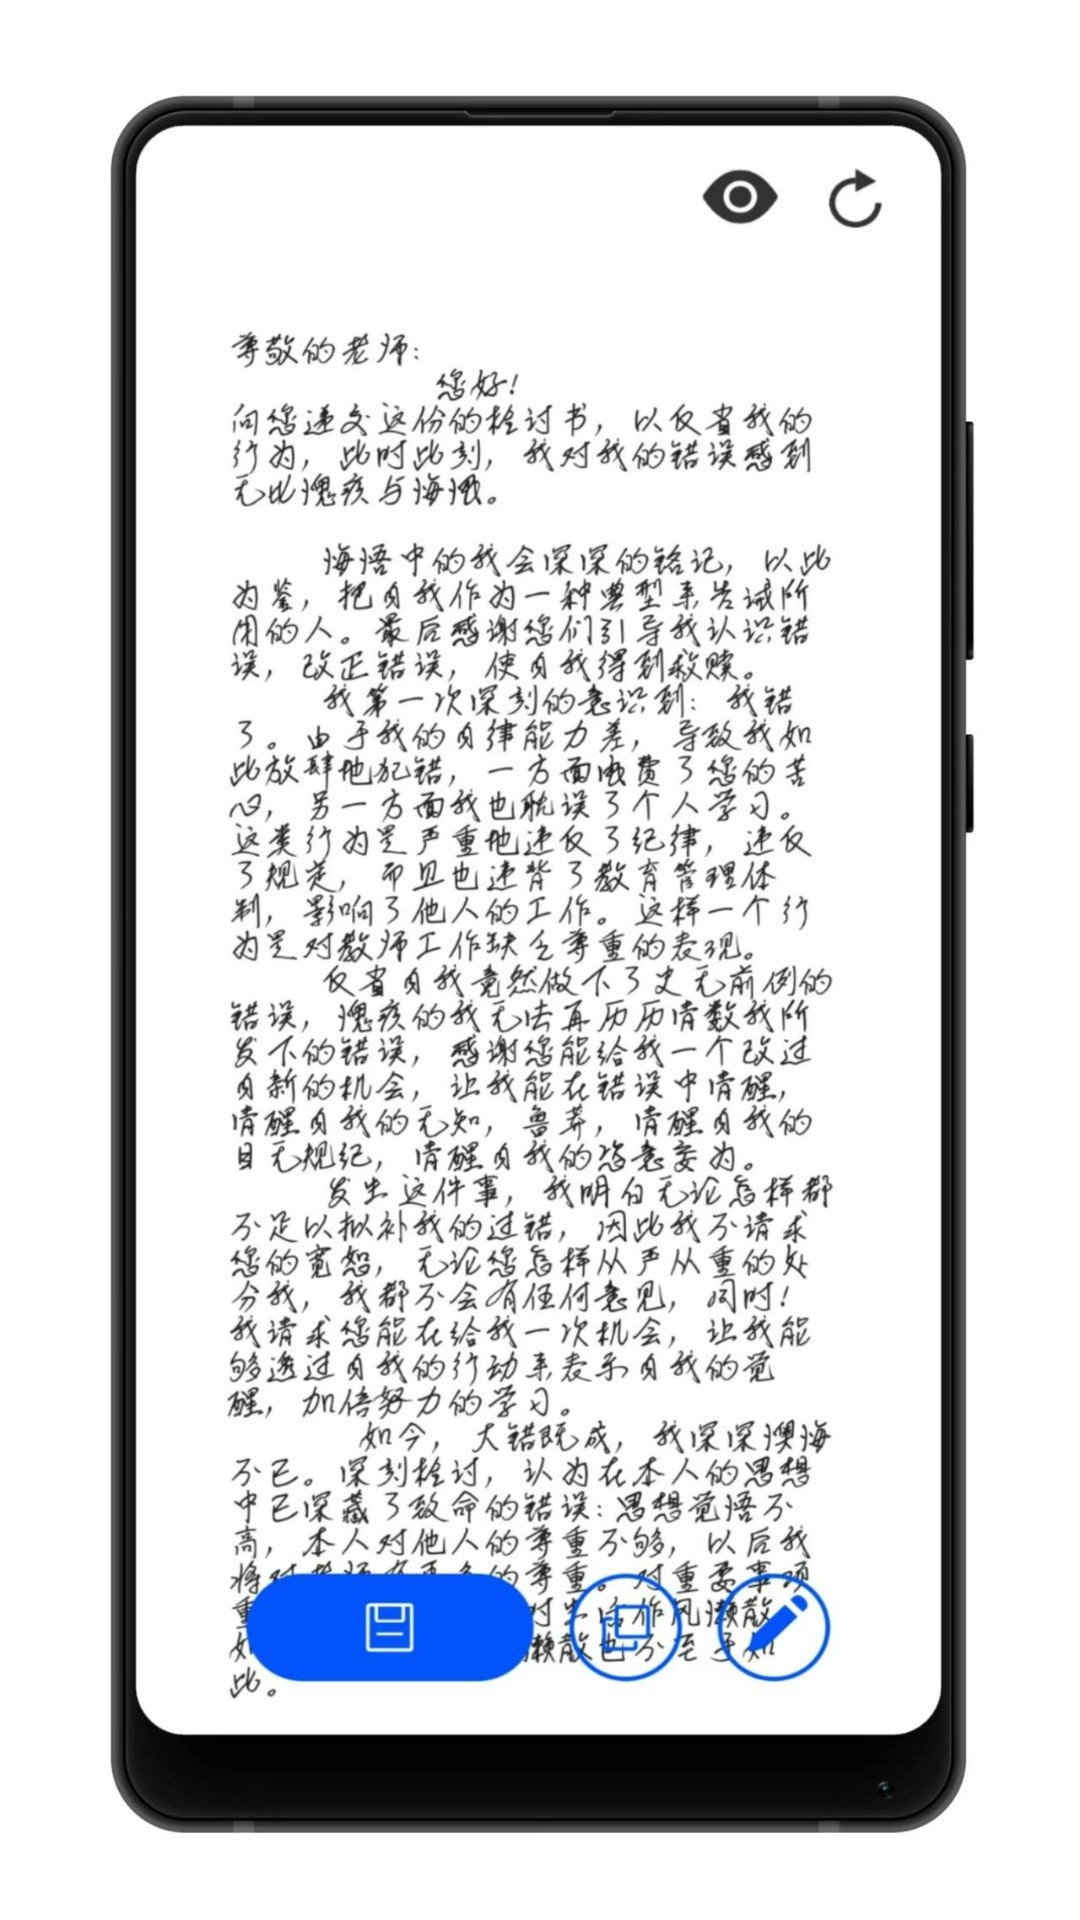 尊敬的老师:
您好!
向您递交这份的检讨书,以反省我的
行为,此时此刻,我对我的错误感到
无比愧疚与悔恨。
悔悟中的我会深深的铭记,以此
为鉴,把自我作为一种典型来告诫所
用的人。最后感谢您们引导我认识错
误,改正错误,使自我得到救赎。
我第一次深刻的意识到:我错
了。由于我的自律能力差,导致我如
此放肆地犯错,一方面浪费了您的苦
心,另一方面我也耽误了个人学习。
这类行为是严重地违反了纪律,违反
了规定,而且也违背了教育管理体
制,影响了他人的工作。这样一个行
为是对教师工作缺乏尊重的表现。
反省自我竟然做下了史无前例的
错误,愧疚的我无法再历历清数我所
发下的错误,感谢您能给我一个改过
自新的机会,让我能在错误中清醒,
清醒自我的无知,鲁莽,清醒自我的
目无规纪,清醒自我的恣意妄为。
发出这件事,我明白无论怎样都
不足以拟补我的过错,因此我不请求
您的宽恕,无论您怎样从严从重的处
分我,我都不会有任何意见,同时!
我请求您能在给我一次机会,让我能
够透过自我的行动来表示自我的觉
醒,加倍努力的学习。
如今,大错既成,我深深懊悔
不已。深刻检讨,认为在本人的思想
中已深藏了致命的错误:思想觉悟不
高,本人对他人的尊重不够,以后我
将对老师有更多的尊重。对重要事项
重 对生活作风懒散
如 懒散也不至于如
此。